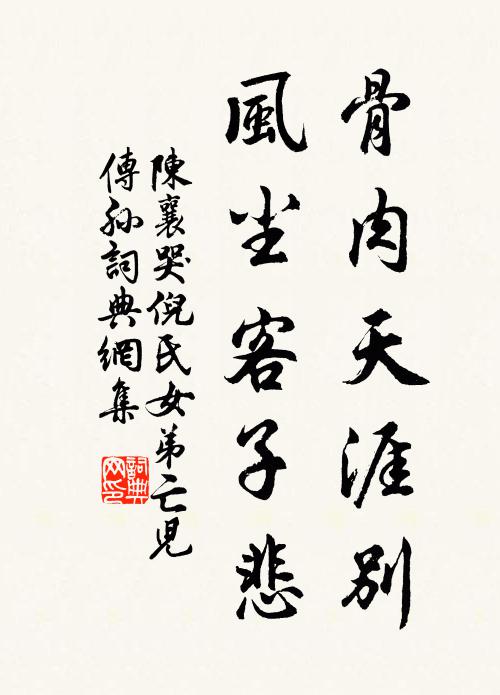 骨肉天涯別
風尘客子悲
陳襄哭倪氏女弟亡児
傳孙詞典網集
詞典网印